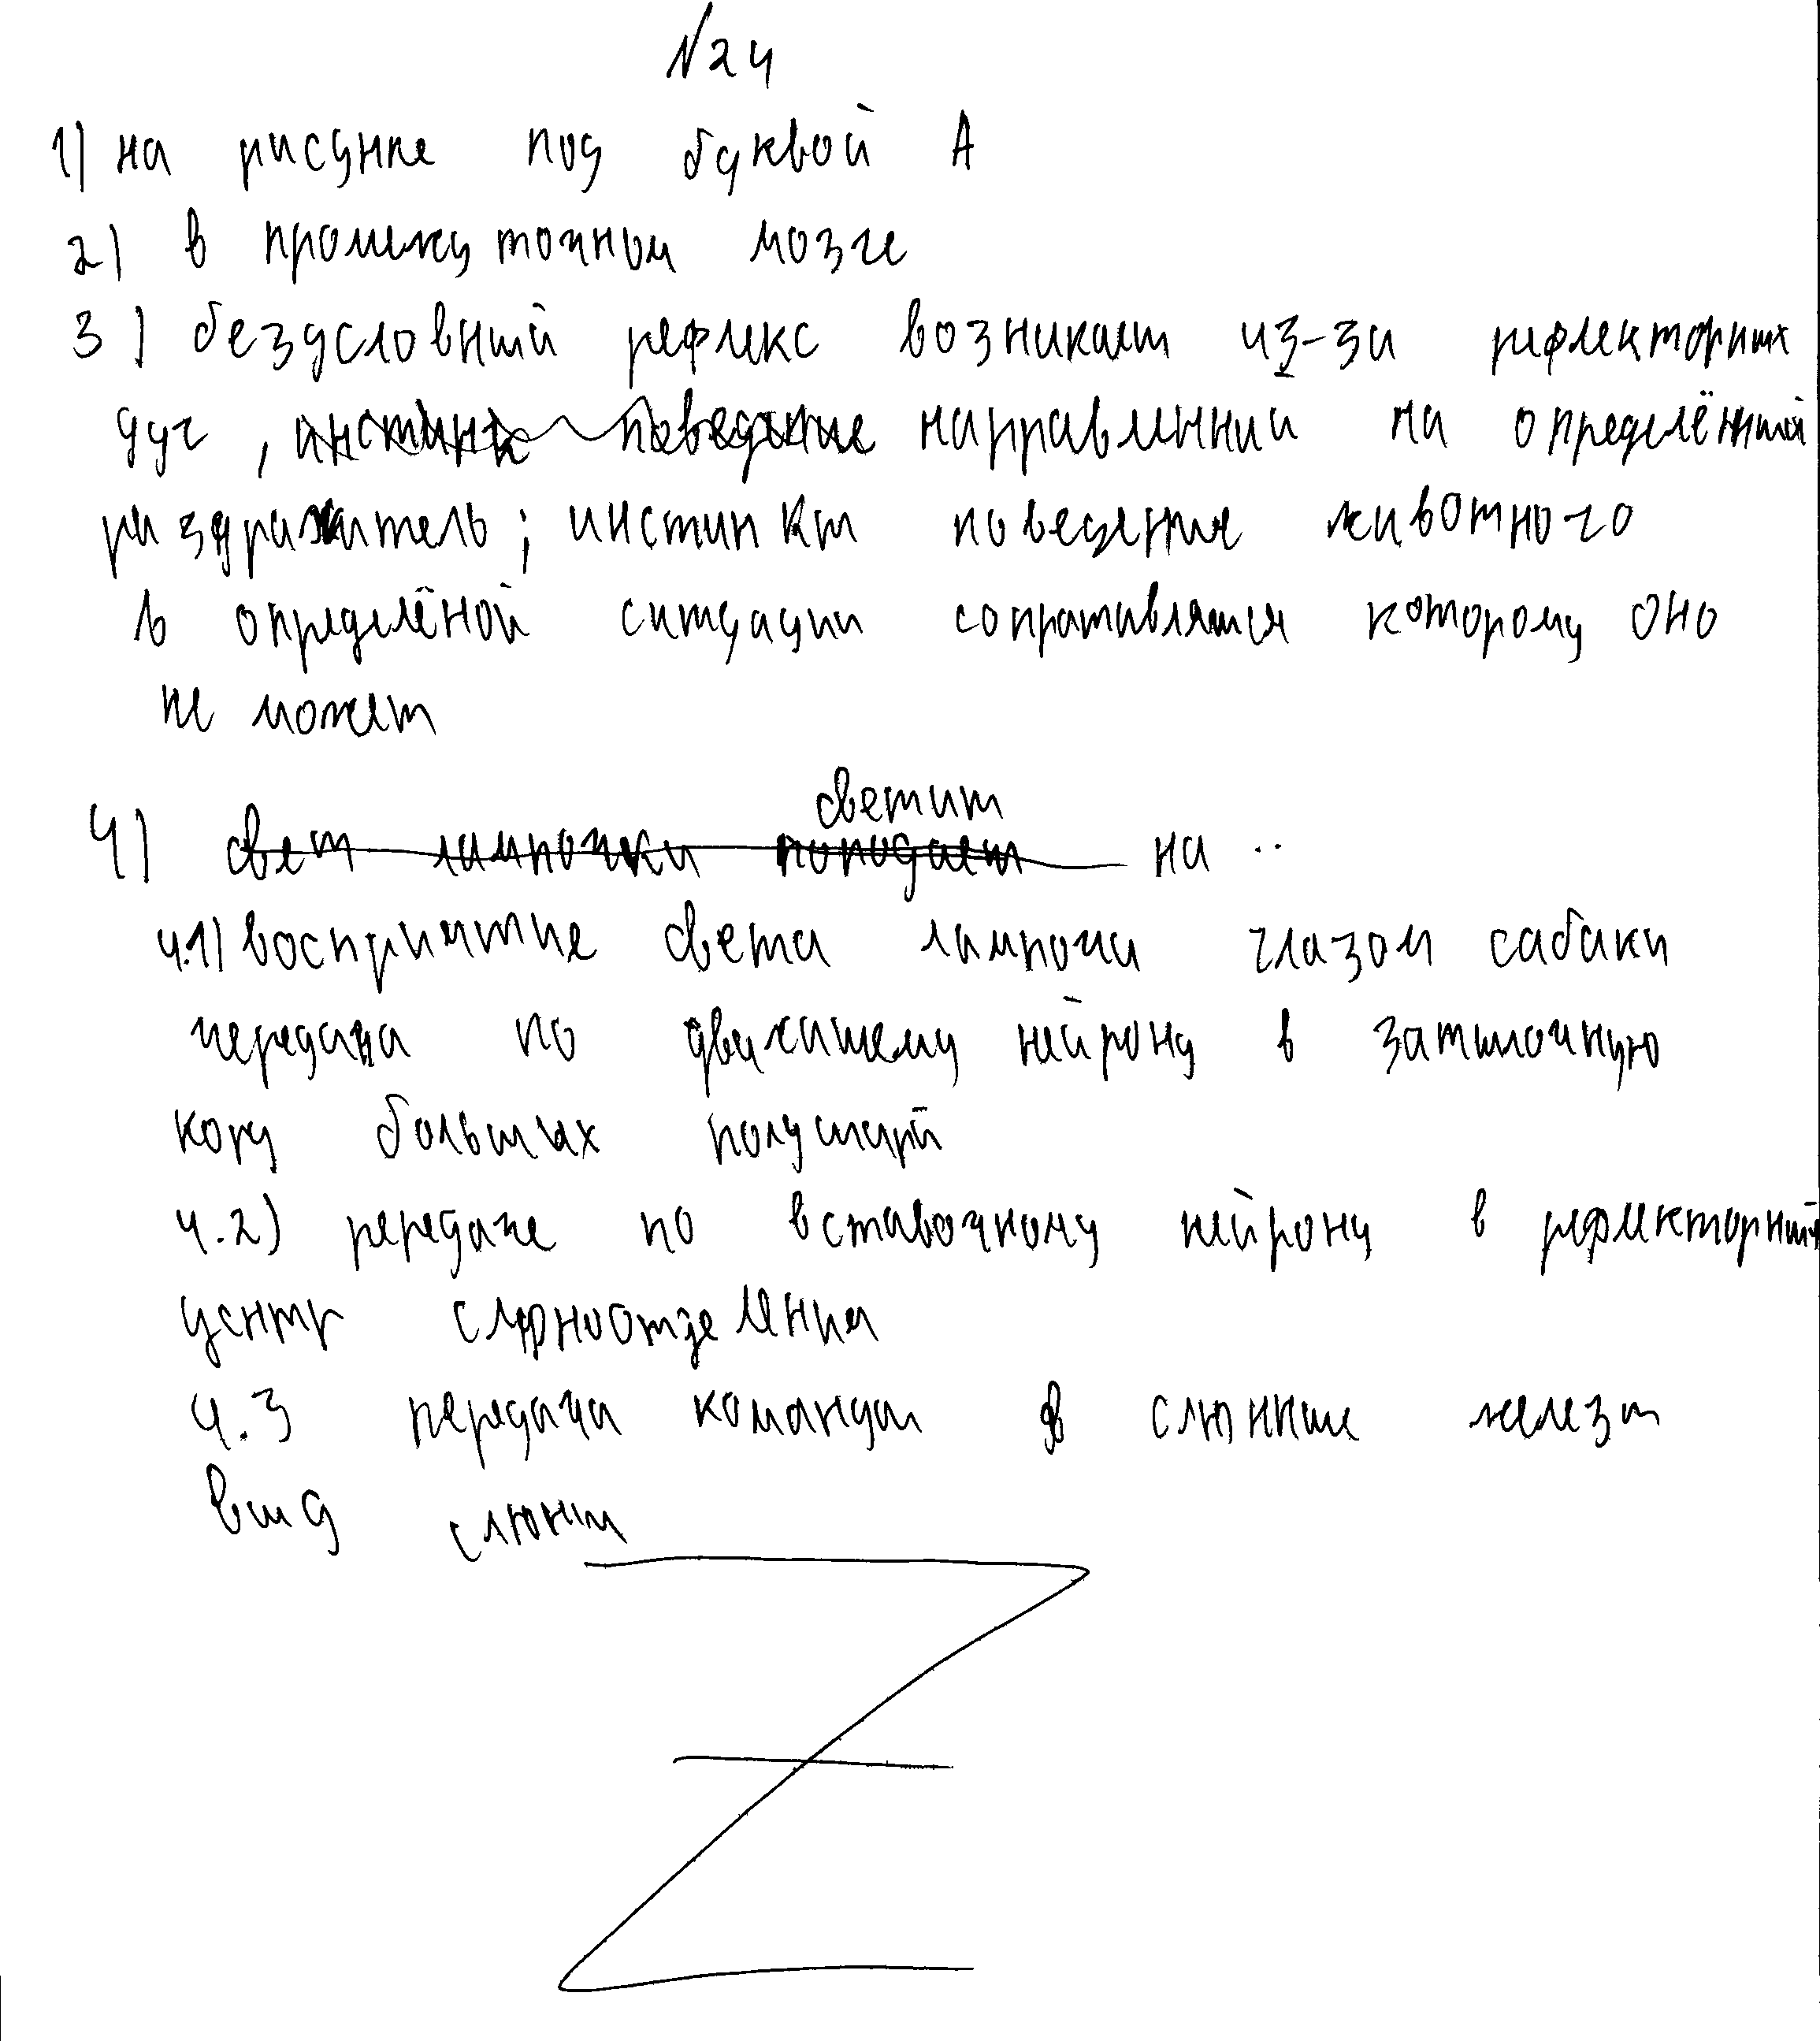 №24
1) на рисунке под буквой А
2) в промежуточном мозге
3) безусловный рефлекс возникает из-за рефлекторных
дуг, инстинк поведение направленний на определённый
раздражитель; инстинкт поведения животного
в определёной ситуации сопративляться которому оно
не может
светит
4) свет лампочки поподает на ..
4.1) восприятие света лампочи глазом сабаки
передача по двигателему нейрону в затылочную
кору больших полушарй
4.2) передаче по вставочному нейрону в рефлекторный
центр слюноотделения
4.3 передача команды в слюнные железы
выд слюны